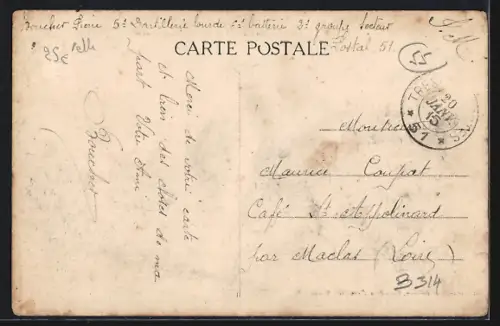 Boucher Pierre 5e d'artillerie lourde 6e batterie 3e groupe secteur
Postal 51.
F.M.
25€
CARTE POSTALE
55
Merci de votre carte
et bien des choses de ma
part Votre Ami
Boucher
TRESOR
20
JANV
15
* 51 *
Monsieur
Maurice Coupat
Café St Appolinard
par Maclas (Loire)
B314